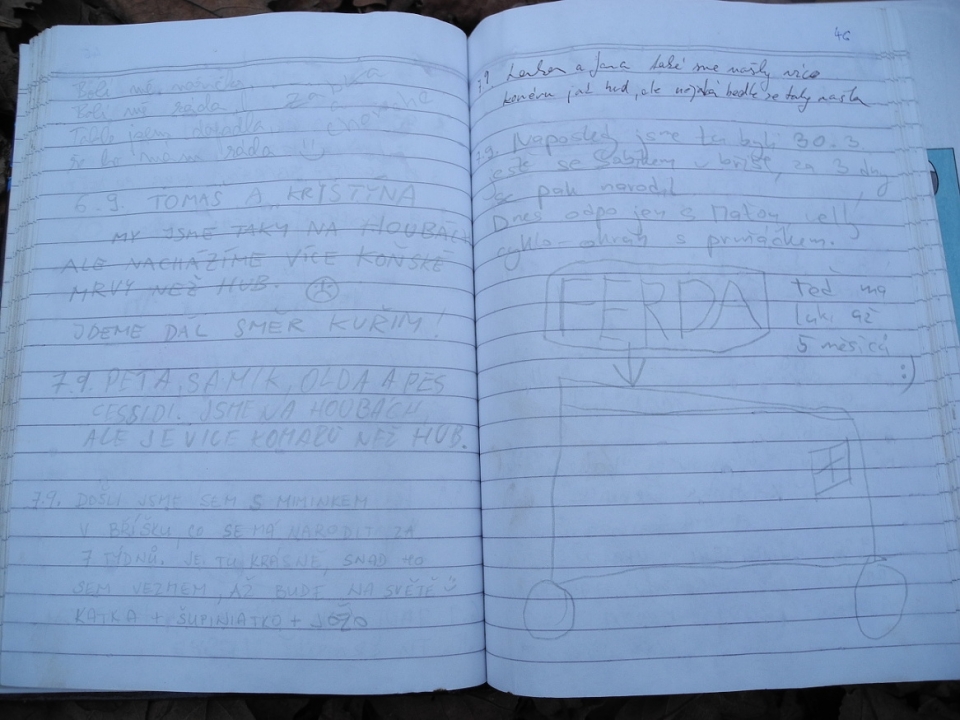 Bolí mě nožička
Bolí mě záda!
Takže jsem dosedla,
se to máma ráda
6.9. TOMÁŠ A KRISTÝNA
MY JSME TAKY NA HOUBÁCH
ALE NACHÁZÍME VÍCE KOŇSKÉ
MRVY NEŽ HUB.
JDEME DÁL SMĚR KUŘIM!
7.9. PÉŤA, SAMÍK, OLDA A PES
CESSIDI. JSME NA HOUBÁCH,
ALE JE VÍCE KOMÁRŮ NEŽ HUB.
7.9. DOŠLI JSME SEM S MIMINKEM
V BŘÍŠKU, CO SE MÁ NARODIT ZA
7 TÝDNŮ. JE TU KRÁSNĚ, SNAD HO
SEM VEZMEM, AŽ BUDE NA SVĚTĚ
KATKA + ŠUPINIATKO + JOŽO
46
7.9 Lenka a Jana také sme našly více
komárů jak hub, ale nejaká bedle se taky našla
7.9. Naposledy jsme tu byli 30.3.
ještě se v břiše, za 3 dny
se pak narodil
Dnes odpo jen s Maťou, velký
cyklo-okruh s prvňáčkem.
FERDA
teď má
Luki až
5 měsíců
:)